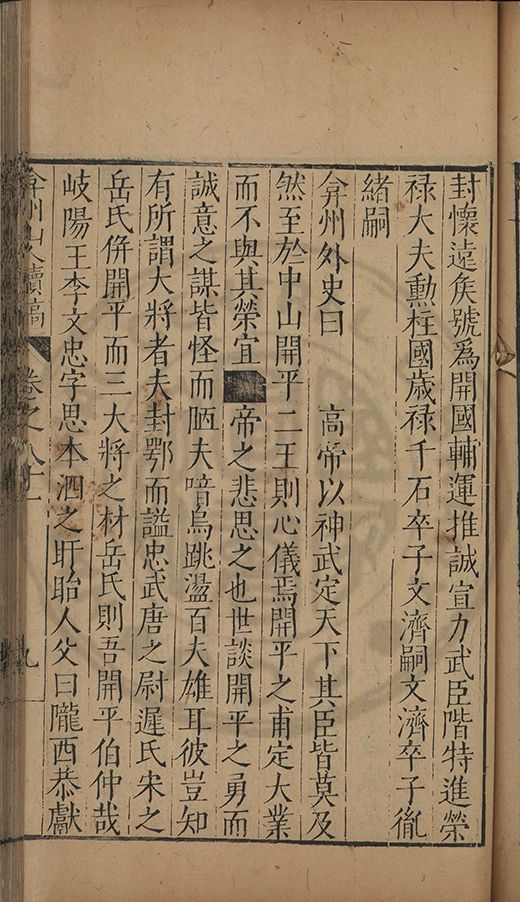 封懷遠矦號爲開國輔運推誠宣力武臣階特進榮
禄大夫勳柱國歲禄千石卒子文濟嗣文濟卒子胤
緒嗣
弇州外史曰　　高帝以神武定天下其臣皆莫及
然至於中山開平二王則心儀焉開平之甫定大業
而不與其榮宜　帝之悲思之也世談開平之勇而
誠意之謀皆怪而陋夫喑烏跳盪百夫雄耳彼豈知
有所謂大將者夫封鄂而謚忠武唐之尉遲氏宋之
岳氏併開平而三大將之材岳氏則吾開平伯仲哉
岐陽王李文忠字思本泗之盱眙人父曰隴西恭獻
弇州山人續稿　卷之八十一　九